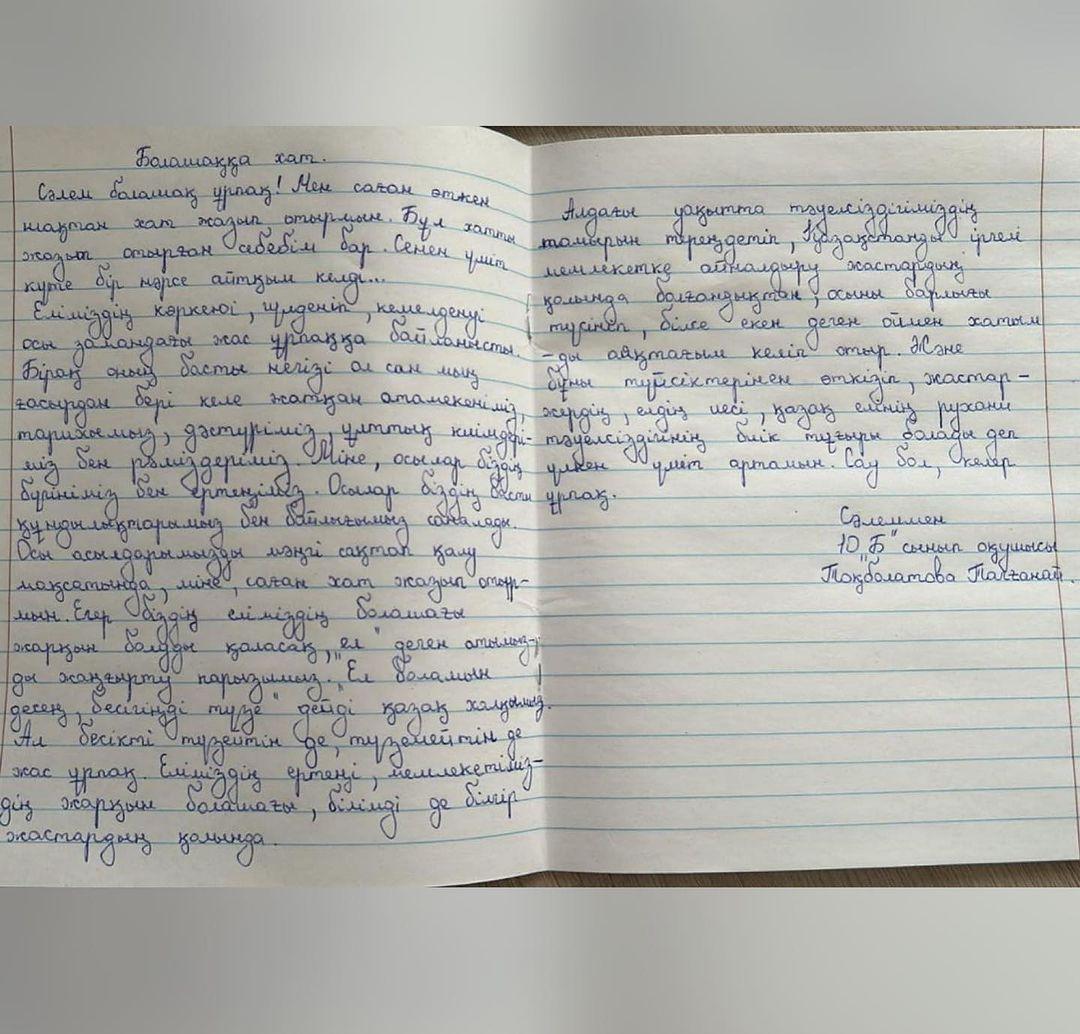 Болашаққа хат.
Сәлем болашақ ұрпақ! Мен саған өткен
шақтан хат жазып отырмын. Бұл хатты
жазып отырған себебім бар. Сенен үміт
күте бір нәрсе айтқым келді...
Еліміздің көркеюі, гүлденіп, кемелденуі
осы замандағы жас ұрпаққа байланысты.
Бірақ оның басты негізі ол сан мың
ғасырдан бері келе жатқан атамекеніміз,
тарихымыз, дәстүріміз, ұлттық киімдері-
міз бен рәміздеріміз. Міне, осылар біздің
бүгініміз бен ертеңіміз. Осылар біздің басты
құндылықтарымыз бен байлығымыз саналады.
Осы асылдарымызды мәңгі сақтап қалу
мақсатында, міне, саған хат жазып отыр-
мын. Егер біздің еліміздің болашағы
жарқын болуды қаласақ, „ел" деген атымыз-
ды жаңғырту парызымыз. „Ел боламын
десең, бесігіңді түзе" дейді қазақ халқымыз.
Ал бесікті түзейтін де, түземейтін де
жас ұрпақ. Еліміздің ертеңі, мемлекетіміз-
дің жарқын болашағы, білімді де білгір
жастардың қолында.
Алдағы уақытта тәуелсіздігіміздің
тамырын тереңдетіп, Қазақстанды іргелі
мемлекетке айналдыру жастардың
қолында болғандықтан, осыны барлығы
түсініп, білсе екен деген оймен хатым
-ды аяқтағым келіп отыр. Және
бұны түйсіктерінен өткізіп, жастар-
жердің, елдің иесі, қазақ елінің рухани
тәуелсіздігінің биік тұғыры болады деп
үлкен үміт артамын. Сау бол, келер
ұрпақ.
Сәлеммен
10 „Б" сынып оқушысы
Тоқболатова Толғанай.